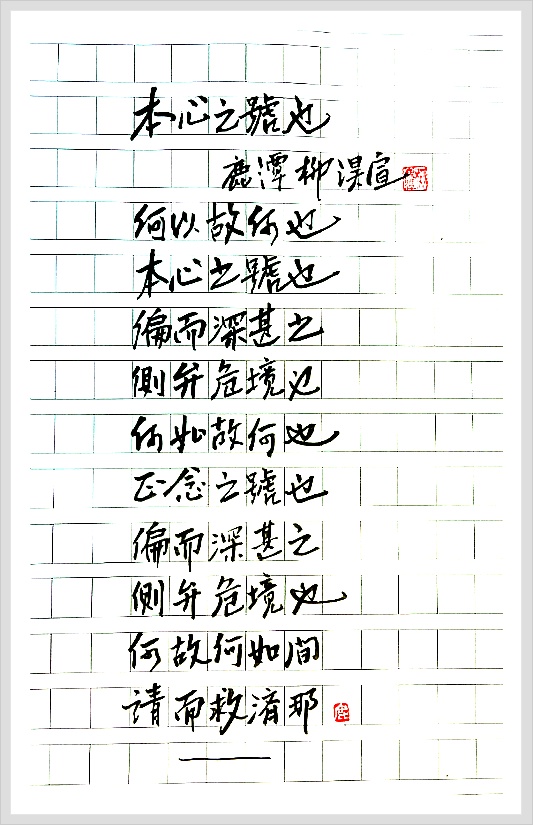 本心之號也
鹿潭柳淏宣
何以故何也
本心之號也
偏而深甚之
側弁危境也
何如故何也
正念之號也
偏而深甚之
側弁危境也
何故何如間
請而救済那
鹿